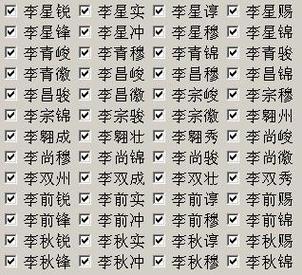 李星锐 李星实 李星谆 李星赐
李星锋 李星冲 李星穆 李星锦
李青峻 李青穆 李青锦 李青骏
李青徽 李昌峻 李昌穆 李昌锦
李昌骏 李昌徽 李宗峻 李宗穆
李宗锦 李宗骏 李宗徽 李翱州
李翱成 李翱壮 李翱秀 李尚峻
李尚穆 李尚锦 李尚骏 李尚徽
李双州 李双成 李双壮 李双秀
李前锐 李前实 李前谆 李前赐
李前锋 李前冲 李前穆 李前锦
李秋锐 李秋实 李秋谆 李秋赐
李秋锋 李秋冲 李秋穆 李秋锦